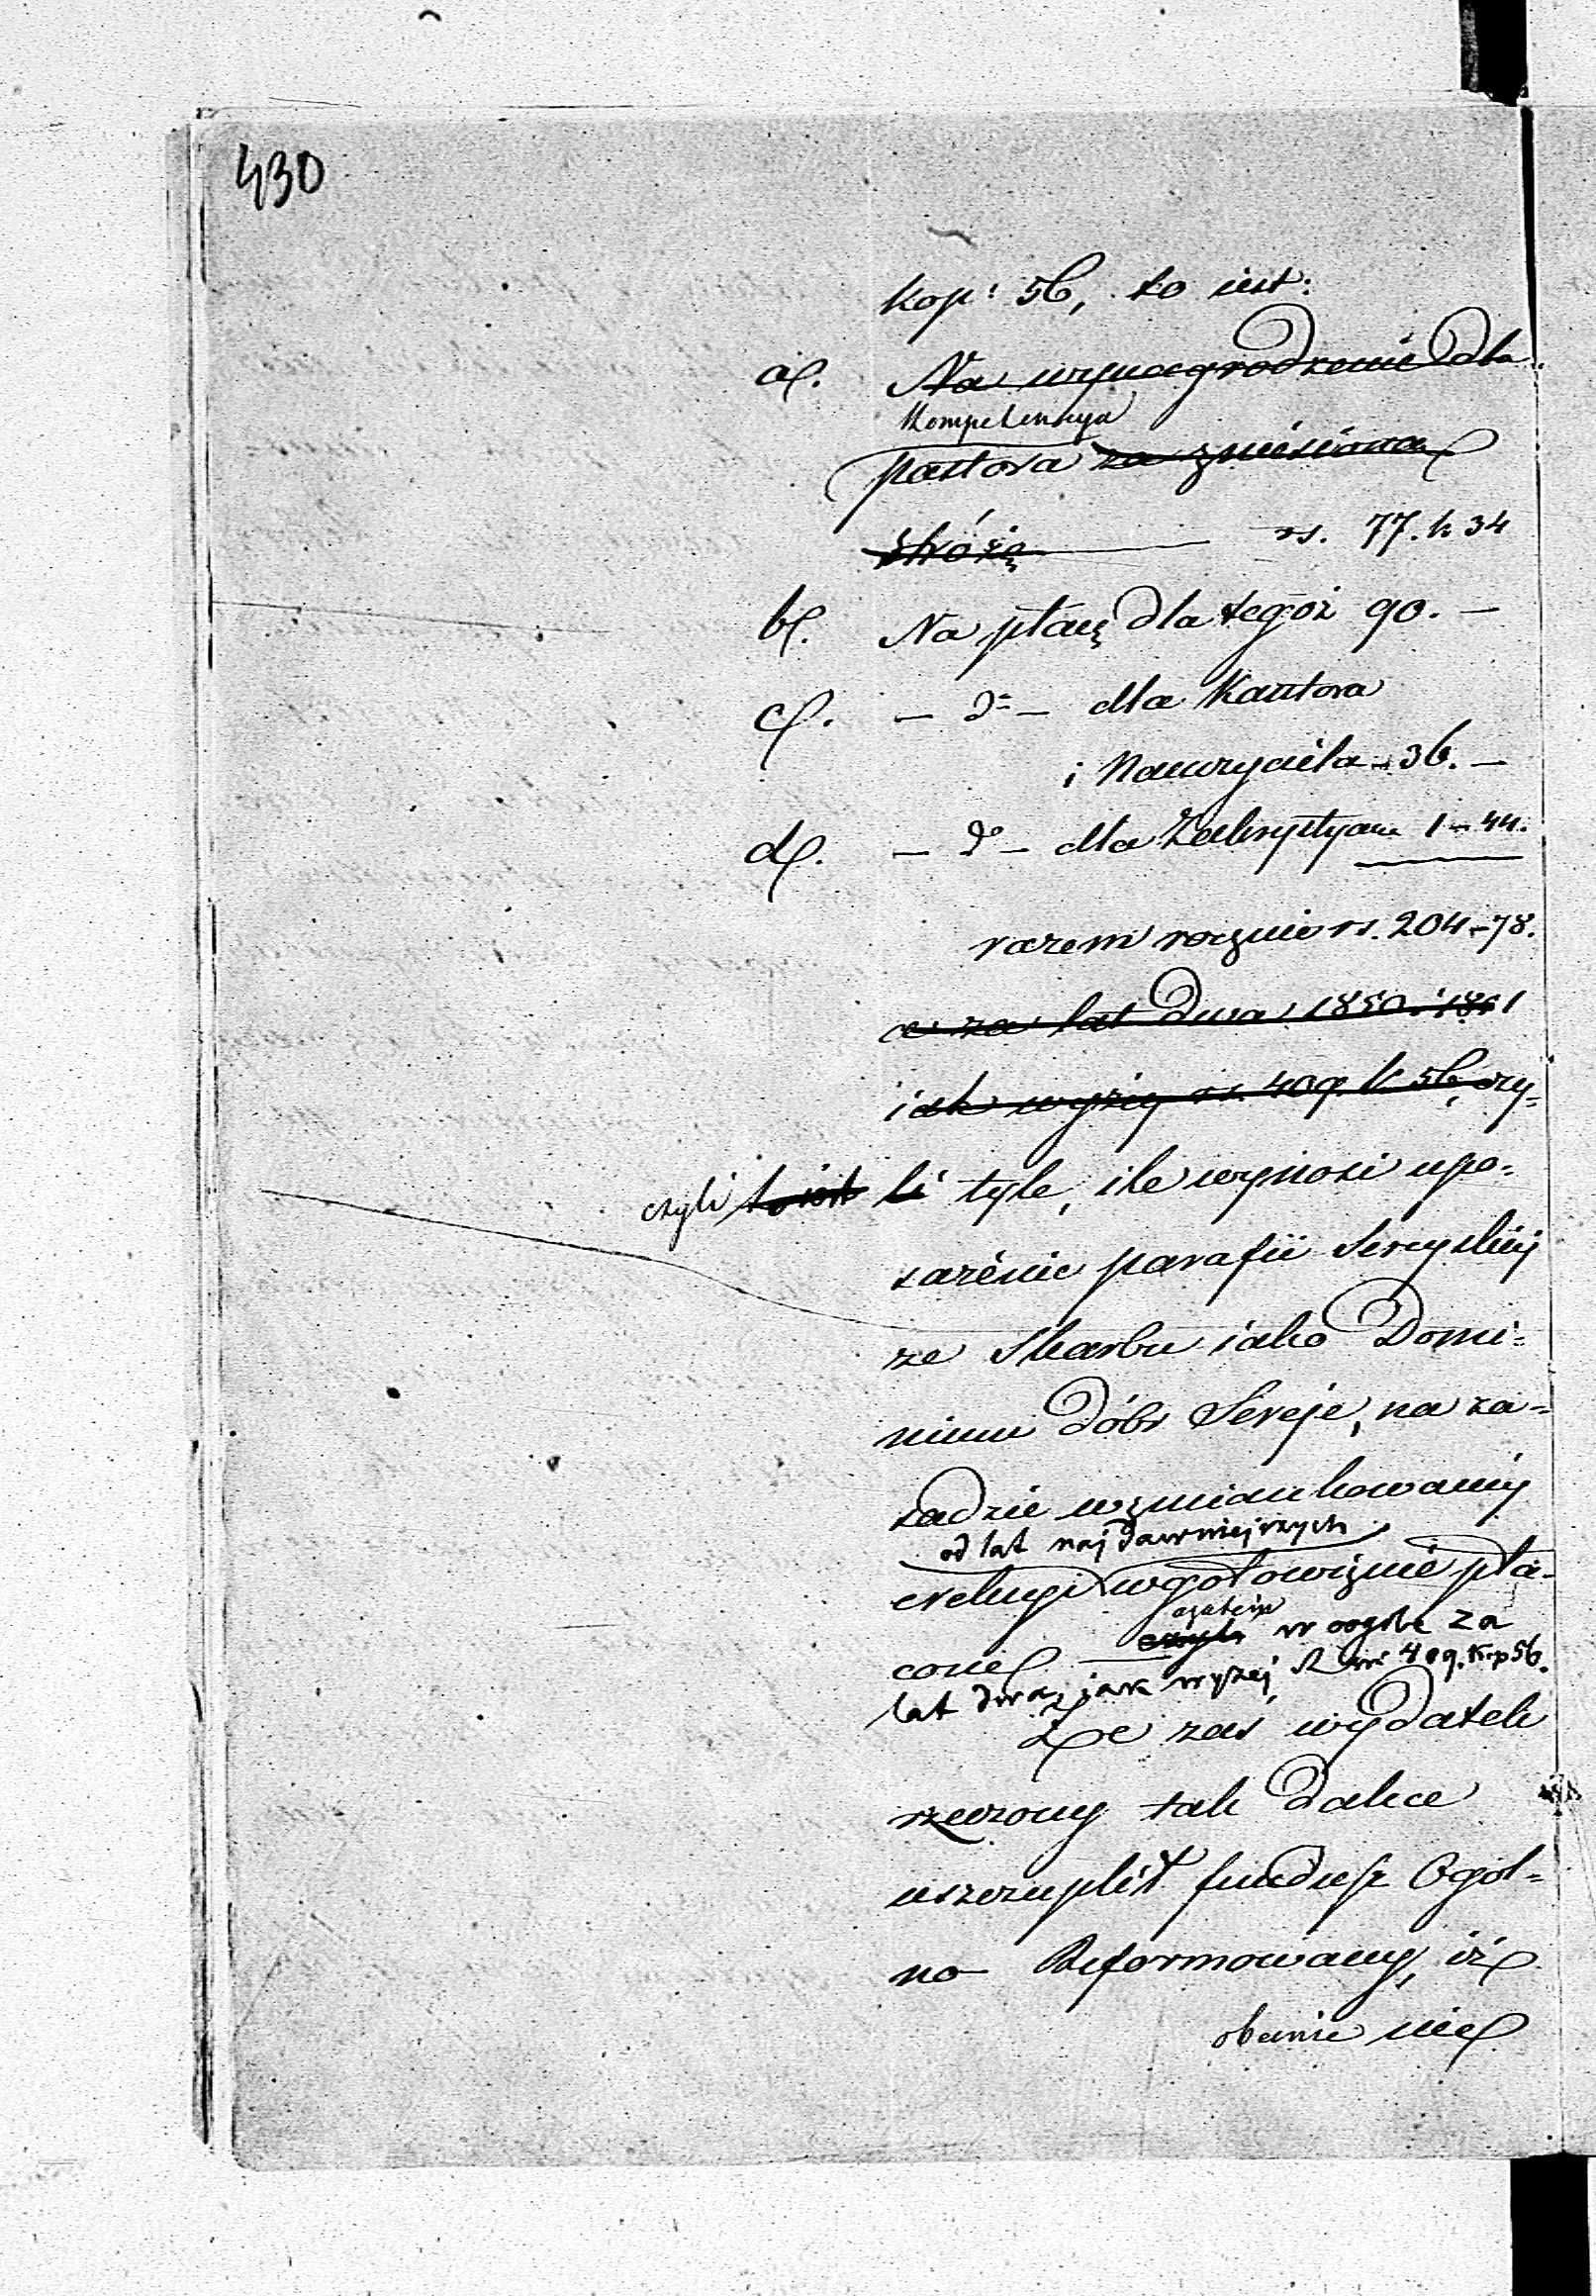 430
kop: 56, to iest:
a/. Na wynagrodzenie dla
Kompetencya
pastora za zniesioną
stróżą rs. 77. k 34
b/. Na płacę dla tegoż 90. —
c/. — do — dla Kantora
i Nauczyciela - 36. —
d/. — do — dla Zakrystyana 1 - 44.
razem rocznie rs. 204 - 78.
a za lat dwa 1850 i 1851
iak wyżey rs. 409. k 56, czy=
czyli to iest li tyle, ile wynosi upo=
sażenie parafii Sereyskiéj
ze Skarbu iako Domi=
nium Dóbr Sereje, na za=
sadzie wzmiankowanéj
od lat najdawniejszych
erekcyi w gotowiznie pła=
zatem
cone czyli w ogóle za
lat dwa, jak wyżej Rs 409. kop 56.
Że zaś wydatek
rzeczony tak dalece
uszczuplił fundusz Ogól=
no Reformowany, iż
obecnie nie